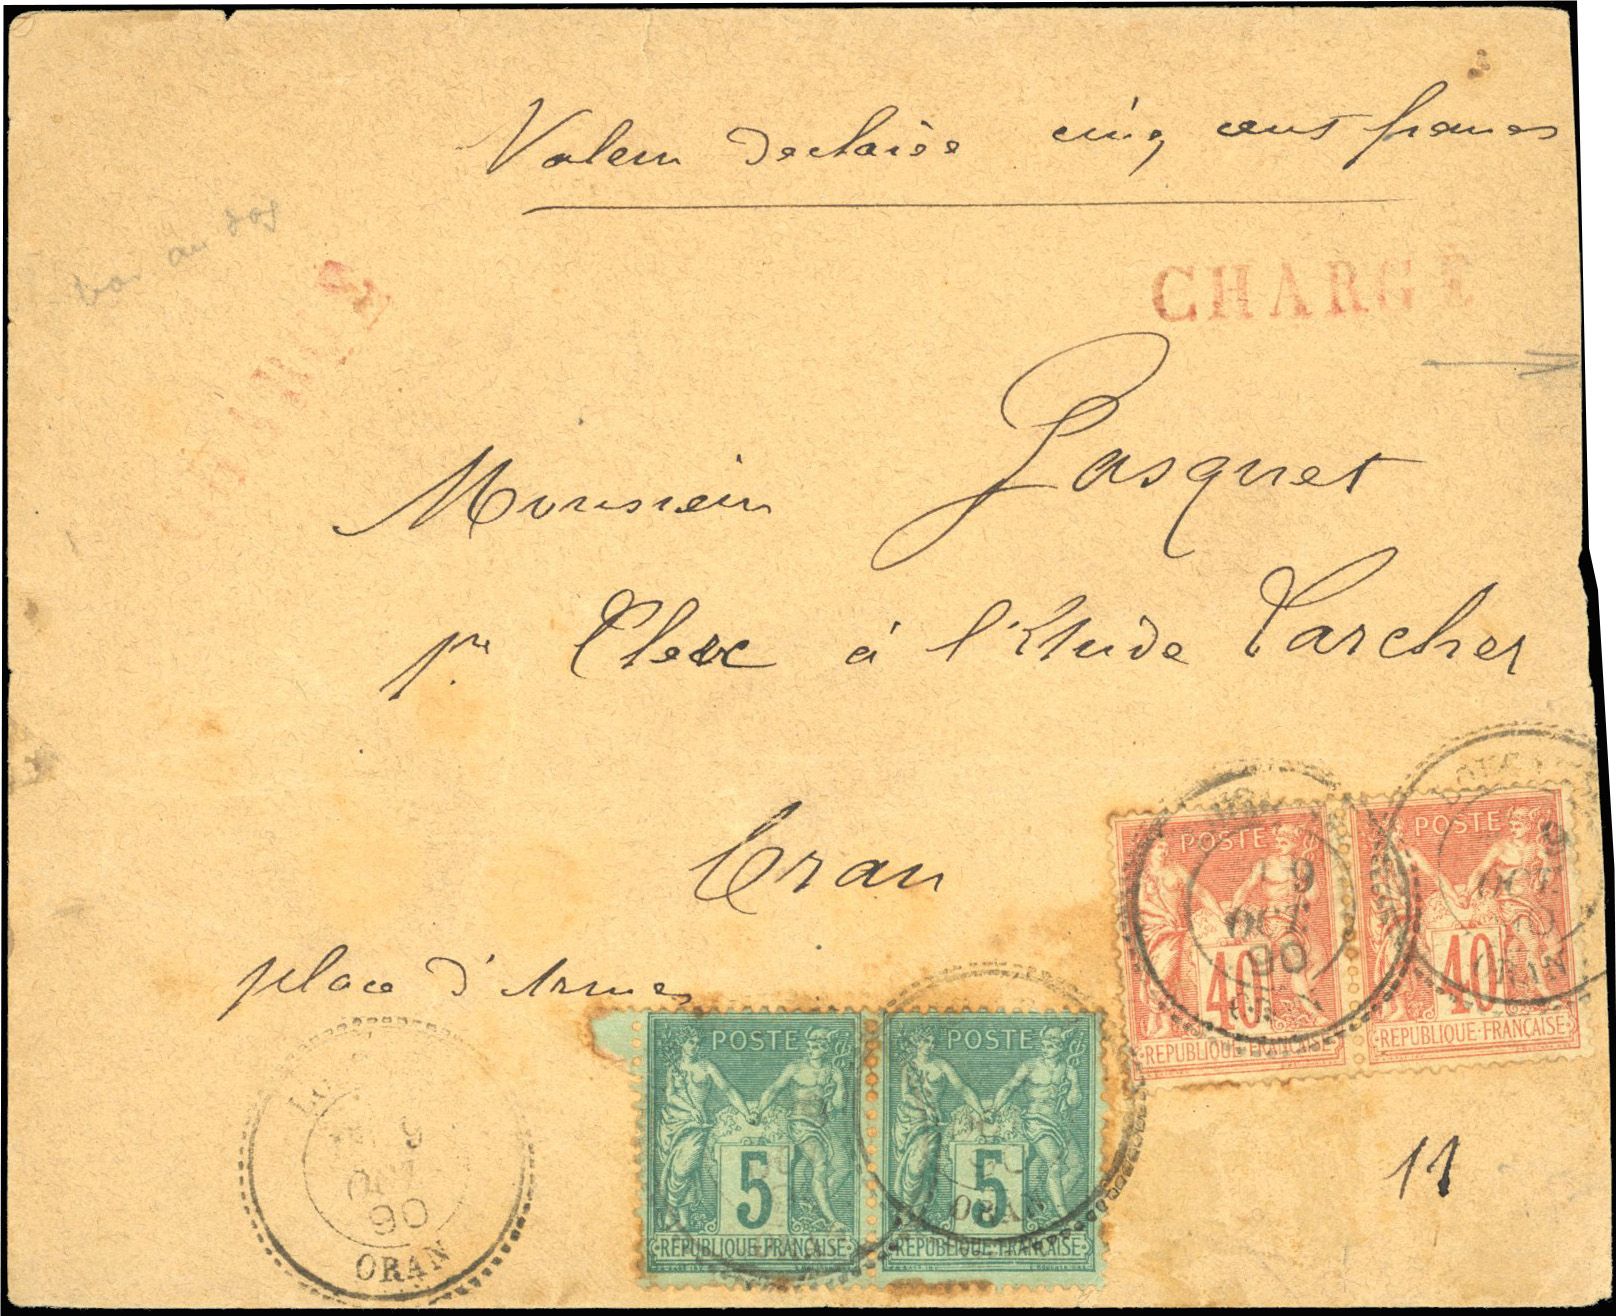 Valeur declarée cinq cent francs
voir au dos
CHARGÉ
CHARGÉ
Monsieur Pasquet
pr Clerc à l'Etude Larcher
Oran
place d'Armes
POSTE
40
REPUBLIQUE FRANÇAISE
POSTE
40
REPUBLIQUE FRANÇAISE
9
OCT
90
ORAN
9
OCT
90
ORAN
POSTE
5
REPUBLIQUE FRANÇAISE
POSTE
5
REPUBLIQUE FRANÇAISE
ORAN
9
OCT
90
ORAN
11